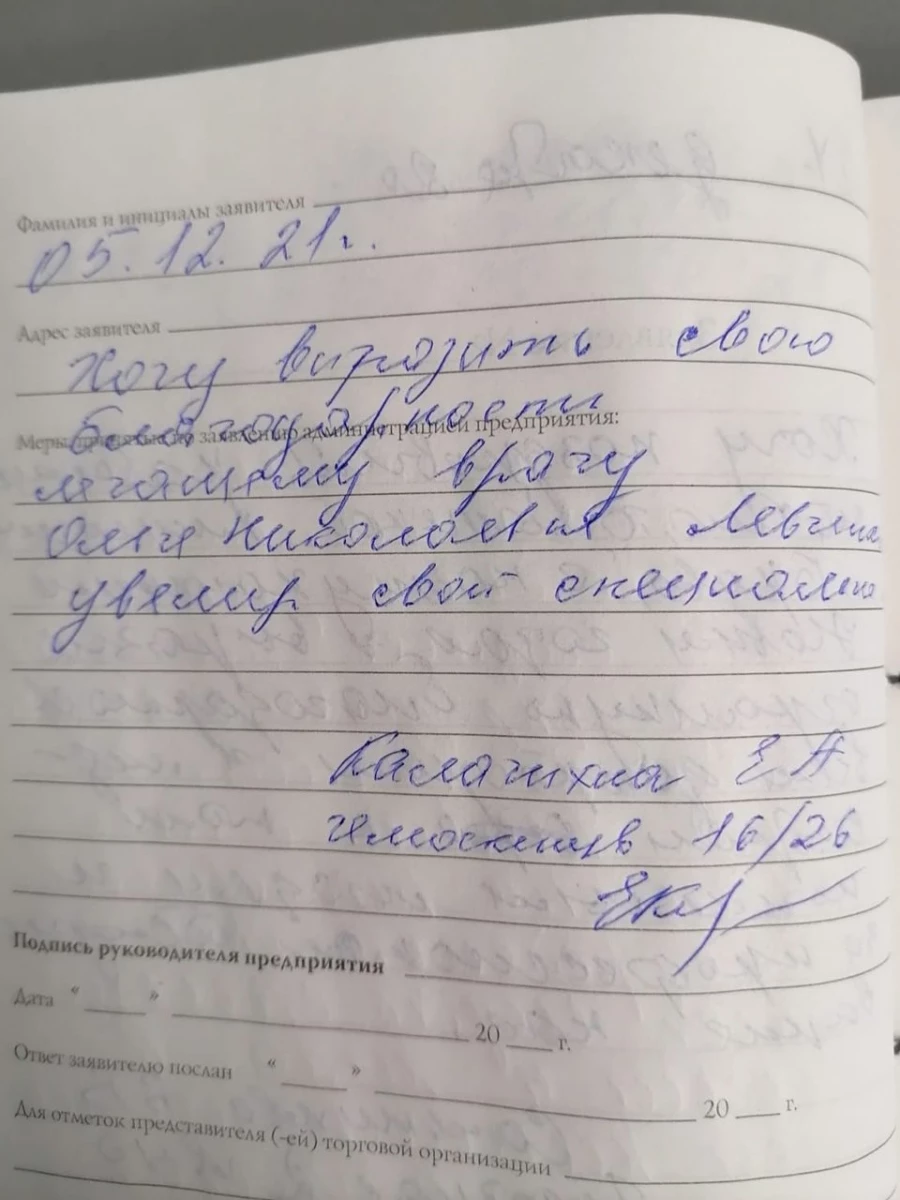 Фамилия и инициалы заявителя
05.12.21г.
Адрес заявителя
Хочу выразить свою
благодарность
Меры, принятые по заявлению администрацией предприятия:
лечащему врачу
Ольге Николаевне
увелир свой специальн
Калачихина Е А
16/26
Подпись руководителя предприятия
Дата " " 20 г.
Ответ заявителю послан " " 20 г.
Для отметок представителя (-ей) торговой организации